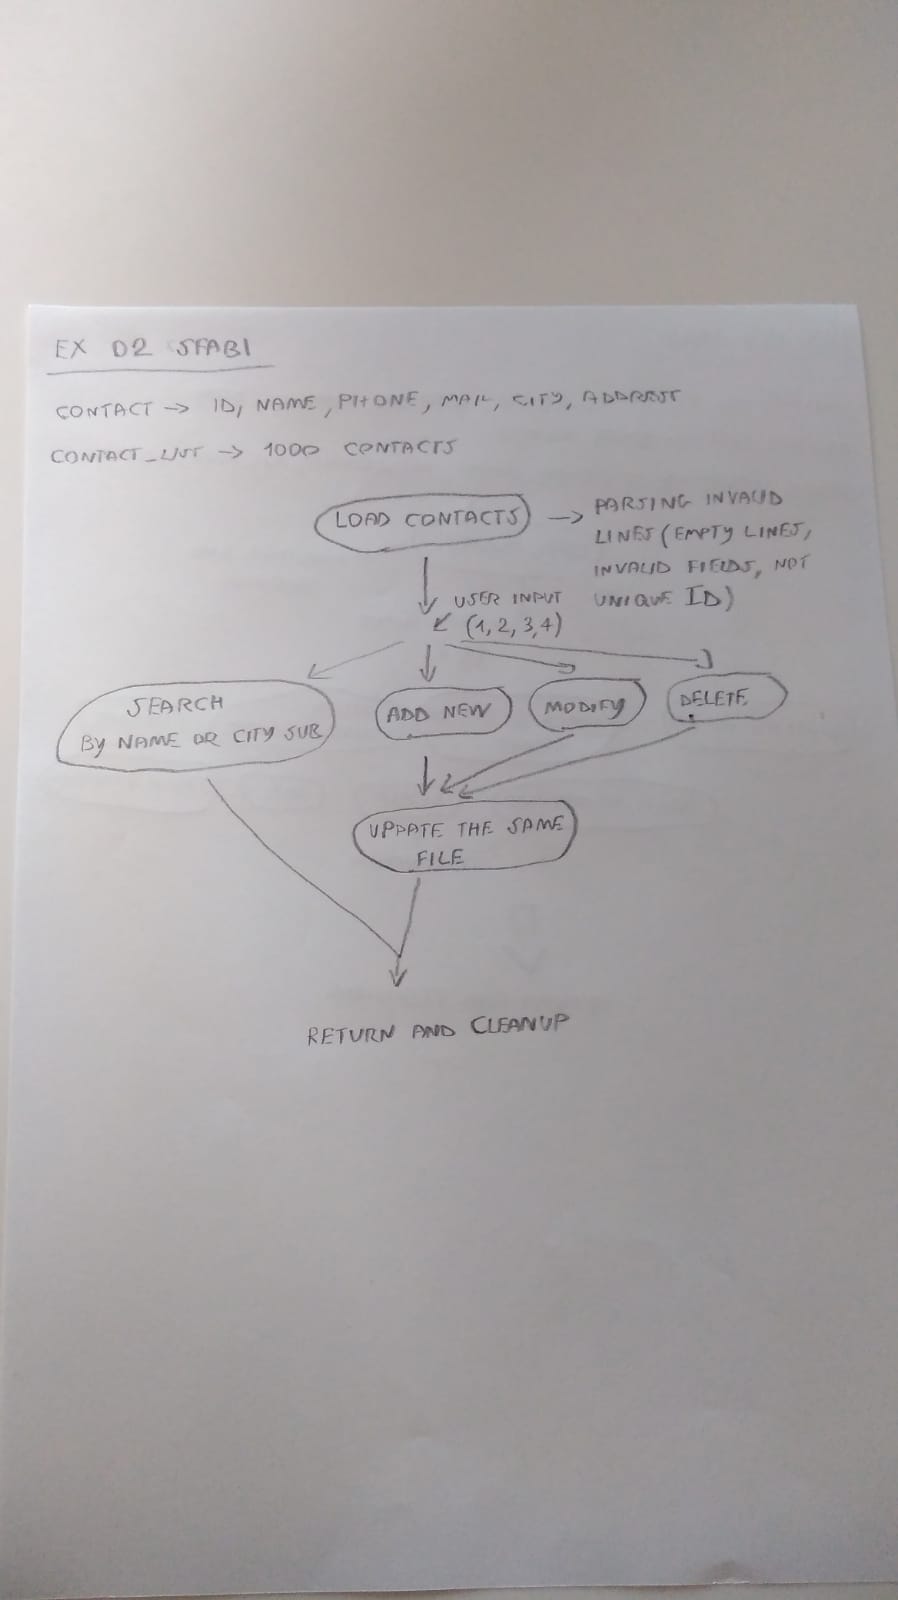 EX D2 SFABI
CONTACT -> ID, NAME, PHONE, MAIL, CITY, ADDRESS
CONTACT_LIST -> 1000 CONTACTS
LOAD CONTACTS -> PARSING INVALID
LINES (EMPTY LINES,
INVALID FIELDS, NOT
UNIQUE ID)
USER INPUT
(1, 2, 3, 4)
SEARCH
BY NAME OR CITY SUB
ADD NEW
MODIFY
DELETE
UPDATE THE SAME
FILE
RETURN AND CLEANUP